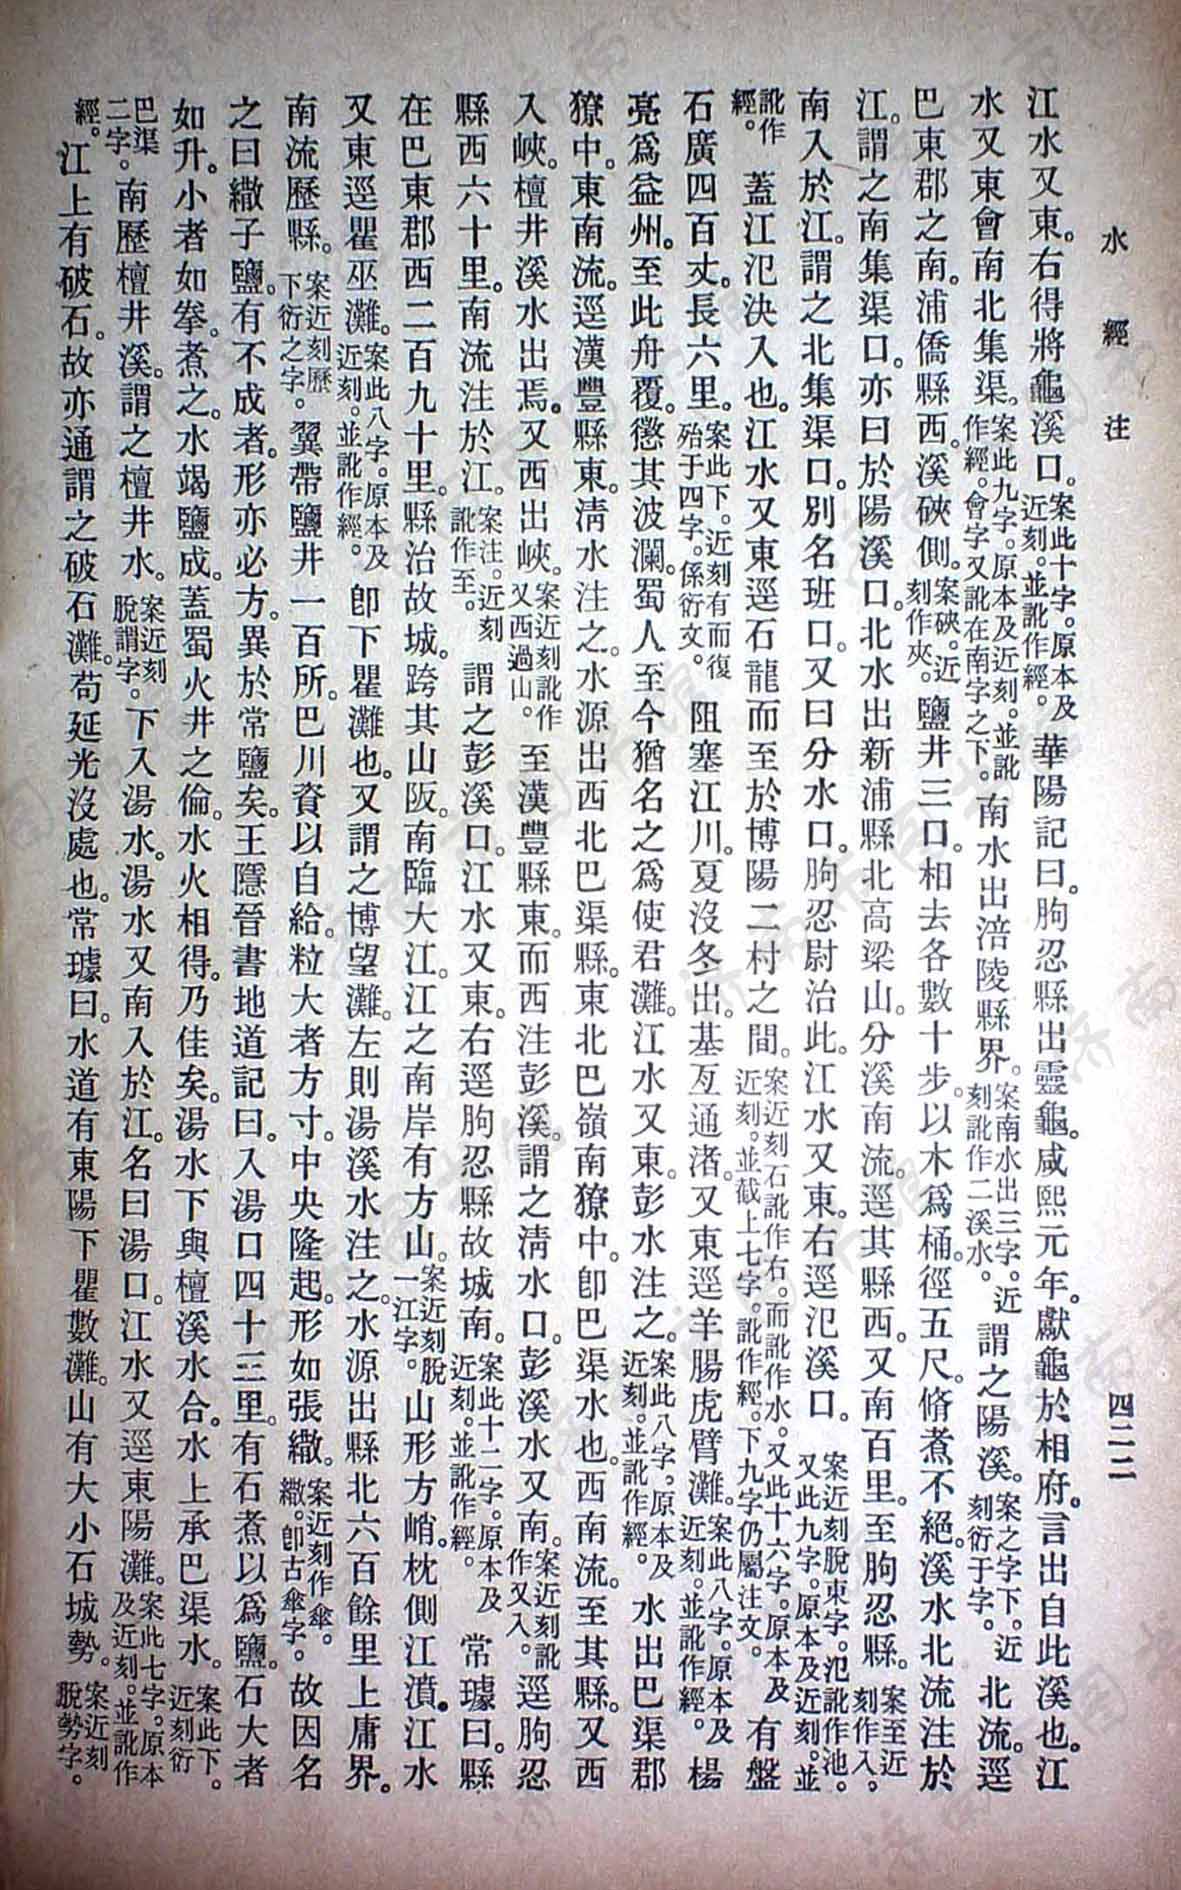 水經注
四二二
江水又東。右得將龜溪口。案此十字。原本及近刻。並訛作經。華陽記曰。朐忍縣出靈龜。咸熙元年。獻龜於相府。言出自此溪也。江
水又東會南北集渠。案此九字。原本及近刻。並訛作經。會字又訛在南字之下。南水出涪陵縣界。案南水出三字。近刻訛作二溪水。謂之陽溪。案之字下。近刻衍于字。北流。逕
巴東郡之南。浦僑縣西。溪硤側。案硤。近刻作夾。鹽井三口。相去各數十步。以木爲桶。徑五尺。脩煮不絕。溪水北流注於
江。謂之南集渠口。亦曰於陽溪口。北水出新浦縣北高梁山。分溪南流。逕其縣西。又南百里。至朐忍縣。案至近刻作入。
南入於江。謂之北集渠口。別名班口。又曰分水口。朐忍尉治此。江水又東。右逕汜溪口。案近刻脫東字。汜訛作池。又此九字。原本及近刻。並
訛作經。蓋江汜決入也。江水又東逕石龍而至於博陽二村之間。案近刻石訛作右。而訛作水。又此十六字。原本及近刻。並截上七字。訛作經。下九字仍屬注文。有盤
石廣四百丈。長六里。案此下。近刻有而復殆于四字。係衍文。阻塞江川。夏沒冬出。基亙通渚。又東逕羊腸虎臂灘。案此八字。原本及近刻。並訛作經。楊
亮爲益州。至此舟覆。懲其波瀾。蜀人至今猶名之爲使君灘。江水又東。彭水注之。案此八字，原本及近刻。並訛作經。水出巴渠郡
獠中。東南流。逕漢豐縣東。清水注之。水源出西北巴渠縣。東北巴嶺南獠中。卽巴渠水也。西南流。至其縣。又西
入峽。檀井溪水出焉。又西出峽。案近刻訛作又西過山。至漢豐縣東。而西注彭溪。謂之清水口。彭溪水又南。案近刻訛作又入。逕朐忍
縣西六十里。南流注於江。案注。近刻訛作至。謂之彭溪口。江水又東。右逕朐忍縣故城南。案此十二字。原本及近刻。並訛作經。常璩曰。縣
在巴東郡西二百九十里。縣治故城。跨其山阪。南臨大江。江之南岸有方山。案近刻脫一江字。山形方峭。枕側江濆。江水
又東逕瞿巫灘。案此八字。原本及近刻。並訛作經。卽下瞿灘也。又謂之博望灘。左則湯溪水注之。水源出縣北六百餘里上庸界。
南流歷縣。案近刻歷下衍之字。翼帶鹽井一百所。巴川資以自給。粒大者方寸。中央隆起。形如張繖。案近刻作傘。繖。卽古傘字。故因名
之曰繖子鹽。有不成者。形亦必方。異於常鹽矣。王隱晉書地道記曰。入湯口四十三里。有石煮以爲鹽。石大者
如升。小者如拳。煮之。水竭鹽成。蓋蜀火井之倫。水火相得。乃佳矣。湯水下與檀溪水合。水上承巴渠水。案此下。近刻衍
巴渠二字。南歷檀井溪。謂之檀井水。案近刻脫謂字。下入湯水。湯水又南入於江。名曰湯口。江水又逕東陽灘。案此七字。原本及近刻。並訛作
經。江上有破石。故亦通謂之破石灘。苟延光沒處也。常璩曰。水道有東陽下瞿數灘。山有大小石城勢。案近刻脫勢字。